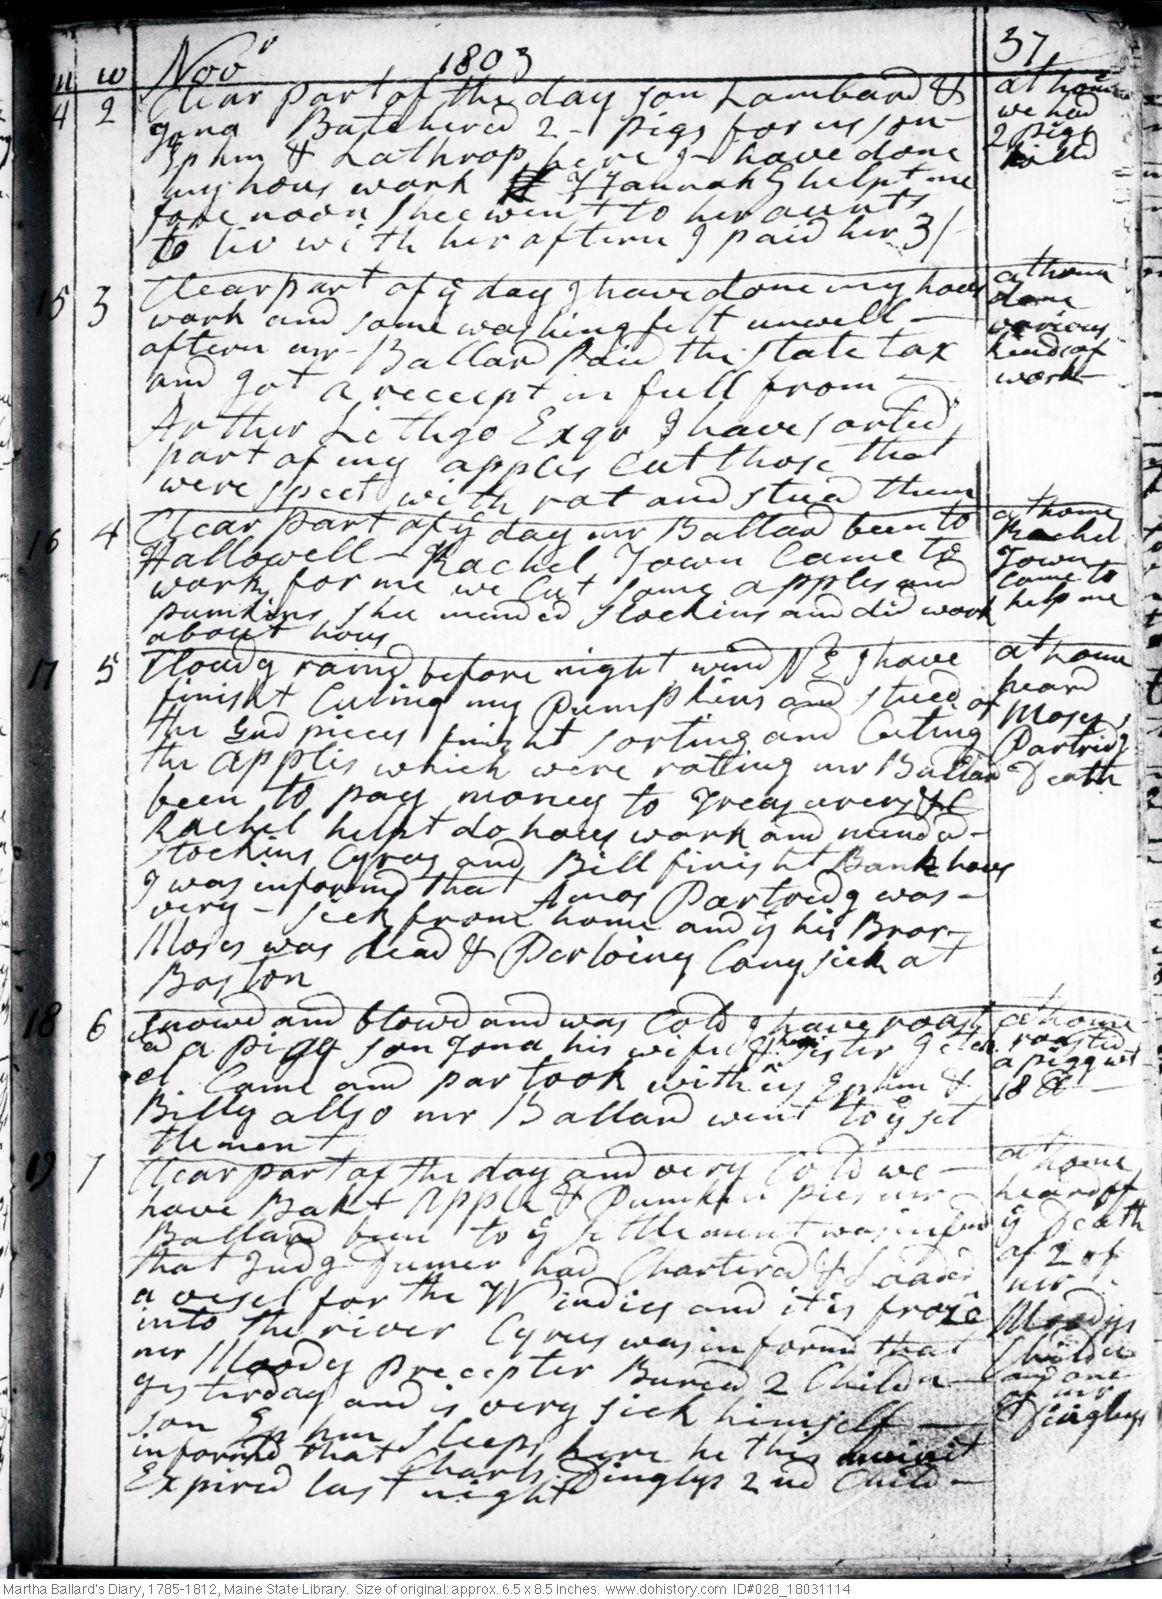 m w Novr 1803 37
4 2 Clear part of the day son Lambard &
Jona Butchered 2 - pigs for us son
Ephm & Lathrop here I have done
my hous work Hannah helpt me
fore noon shee went to her aunts
to liv with her aftern I paid her 3/-
at home
we had
2 pigs
killd
15 3 Clear part of ye day I have done my hous
work and some washing felt unwell -
aftern mr Ballard Paid the State tax
and got a receept in full from -
Arther Lithgo Esqr I have sorted
part of my apples Cut those that
were spect with rot and stued them
at home
done
various
kinds of
work
16 4 Clear part of ye day mr Ballard been to
Hallowell - Rachel Town Came to
work for me we Cut some apples and
pumkins shee mended stockins and did work
about hous
at home
Rachel
Town
came to
help me
17 5 Cloudy raind before night wind NE I have
finisht Cuting my Pumpkins and stued of
the gud pieces finisht sorting and Cuting
the apples which were roting mr Ballard
been to pay money to Treasurer &C
Rachel helpt do hous work and mend
stockins Cyrus and Bill finisht Bank hous
I was informd that Amos Partredg was -
very - sick from home and ye his Bror
Moses was dead & Perloiny Cony sick at
Boston
at home
heard
Moses
Partridg
Death
18 6 Snowd and blowd and was Cold I have roast
ed a pigg son Jona his wife & her Sister
Came and partook with us Ephm &
Billy allso mr Ballard went to ye set
tlement
at home
roasted
a pigg wt
18 lb
19 7 Clear part of the day and very Cold we -
have Bakt Apple & Pumkin pies mr
Ballard been to ye settlement was informd
that Judg Dumer had Chartered & Loaded
a vesel for the W indies and it is froze
into the river Cyrus was informd that
mr Moody Precepter Buried 2 Childn
yesterday and is very sick himself -
son Ephm sleeps here he this
informd that Charls Dinglys 2nd Child -
Expired last night
at home
heard of
ye Death
of 2 of
mr
Moodys
Childn
and one
of mr
Dinglys
Martha Ballard's Diary, 1785-1812, Maine State Library. Size of original: approx. 6.5 x 8.5 inches. www.dohistory.com ID#028_18031114